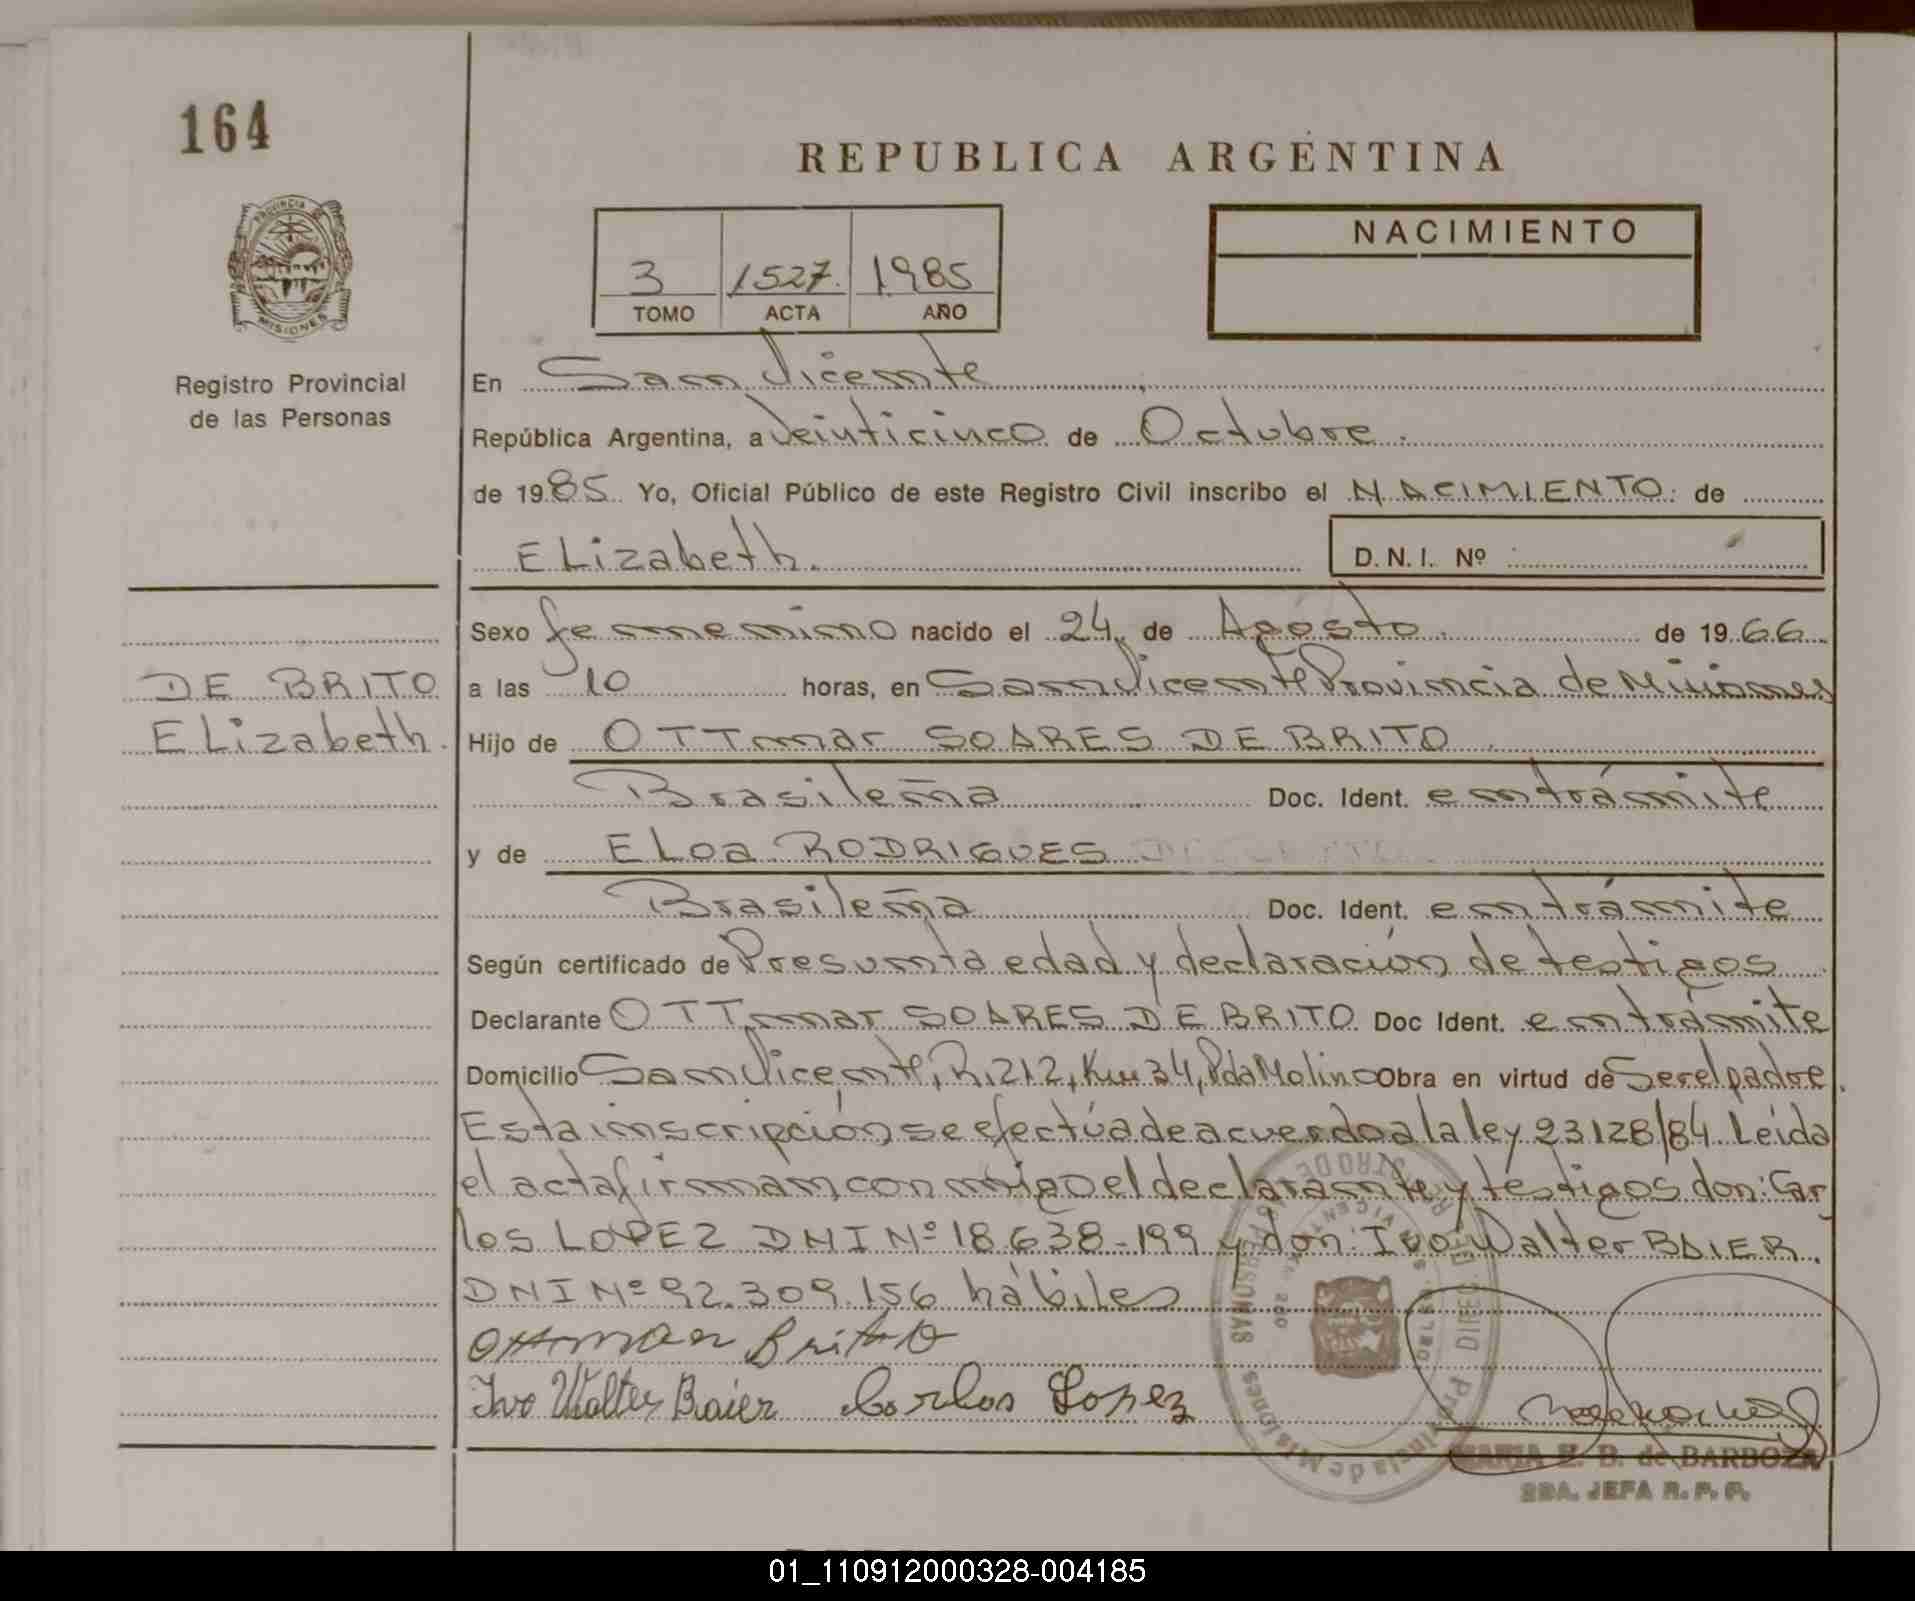 164
REPUBLICA ARGENTINA
NACIMIENTO
3 1527 1985
TOMO ACTA AÑO
PROVINCIA DE MISIONES
Registro Provincial
de las Personas
En San Vicente
República Argentina, a veinticinco de Octubre.
de 1985 Yo, Oficial Público de este Registro Civil inscribo el NACIMIENTO de
ELizabeth. D.N.I. Nº
Sexo femenino nacido el 24 de Agosto de 1966
DE BRITO
ELizabeth.
a las 10 horas, en San Vicente Provincia de Misiones
Hijo de OTTmar SOARES DE BRITO
Brasileña Doc. Ident. en trámite
y de ELoa RODRIGUES
Brasileña Doc. Ident. en trámite
Según certificado de Presunta edad y declaración de testigos
Declarante OTTmar SOARES DE BRITO Doc Ident. en trámite
Domicilio San Vicente, R.212, Km 34, Pda Molino Obra en virtud de Ser el padre.
Esta inscripción se efectúa de acuerdo a la ley 23128/84. Leída
el acta firman conmigo el declarante y testigos don: Car
los LOPEZ DNI Nº 18.638-199 y don: Ivo Walter BAIER.
DNI Nº 92.309.156 hábiles
Ottmar Britto
Ivo Walter Baier Carlos Lopez
MARIA E. B. de BARBOZA
2DA. JEFA R. P. P.
01_110912000328-004185